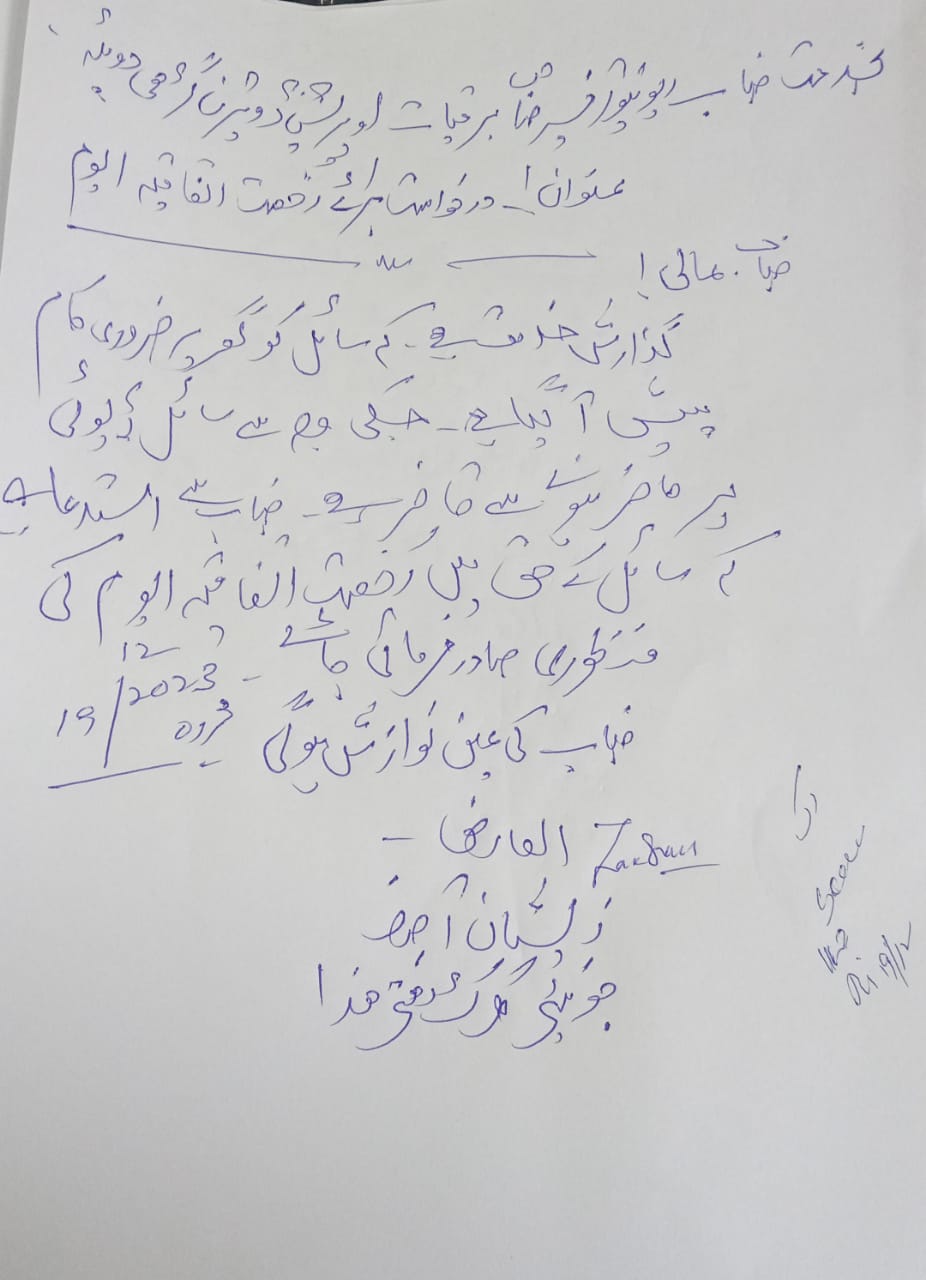 بخدمت جناب ریونیو آفیسر صاحب برقیات اوپریشن ڈویژن گڑھی دوپٹہ
عنوان! - درخواست برائے رخصت اتفاقیہ الیوم
جناب عالی!
گذارش خدمت ہے - کہ سائل کو گھر پر ضروری کام
پیش آ گیا ہے - جسکی وجہ سے سائل ڈیوٹی
پر حاضر ہونے سے قاصر ہے - جناب سے استدعا ہے
کہ سائل کے حق میں رخصت اتفاقیہ الیوم کی
منظوری صادر فرمائی جائے -
جناب کی عین نوازش ہوگی
محررہ 19/12/2023
العارض -
ذیشان آصف
جونیئر کلرک دفتر ھذا
19/12